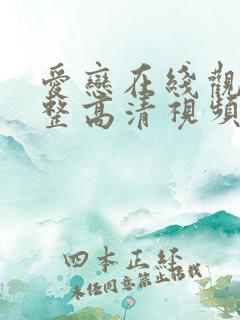 愛戀在线觀
整高清視頻
四本正经
未经同意禁止转载